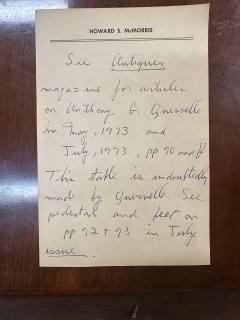 HOWARD S. McMORRIS
See Antiques
magazine for articles
on Anthony G. Quervelle
in May, 1973 and
July, 1973, pp 90 and ff
This table is undoubtedly
made by Quervelle. See
pedestal and feet on
pp 92 + 93 in July
issue.